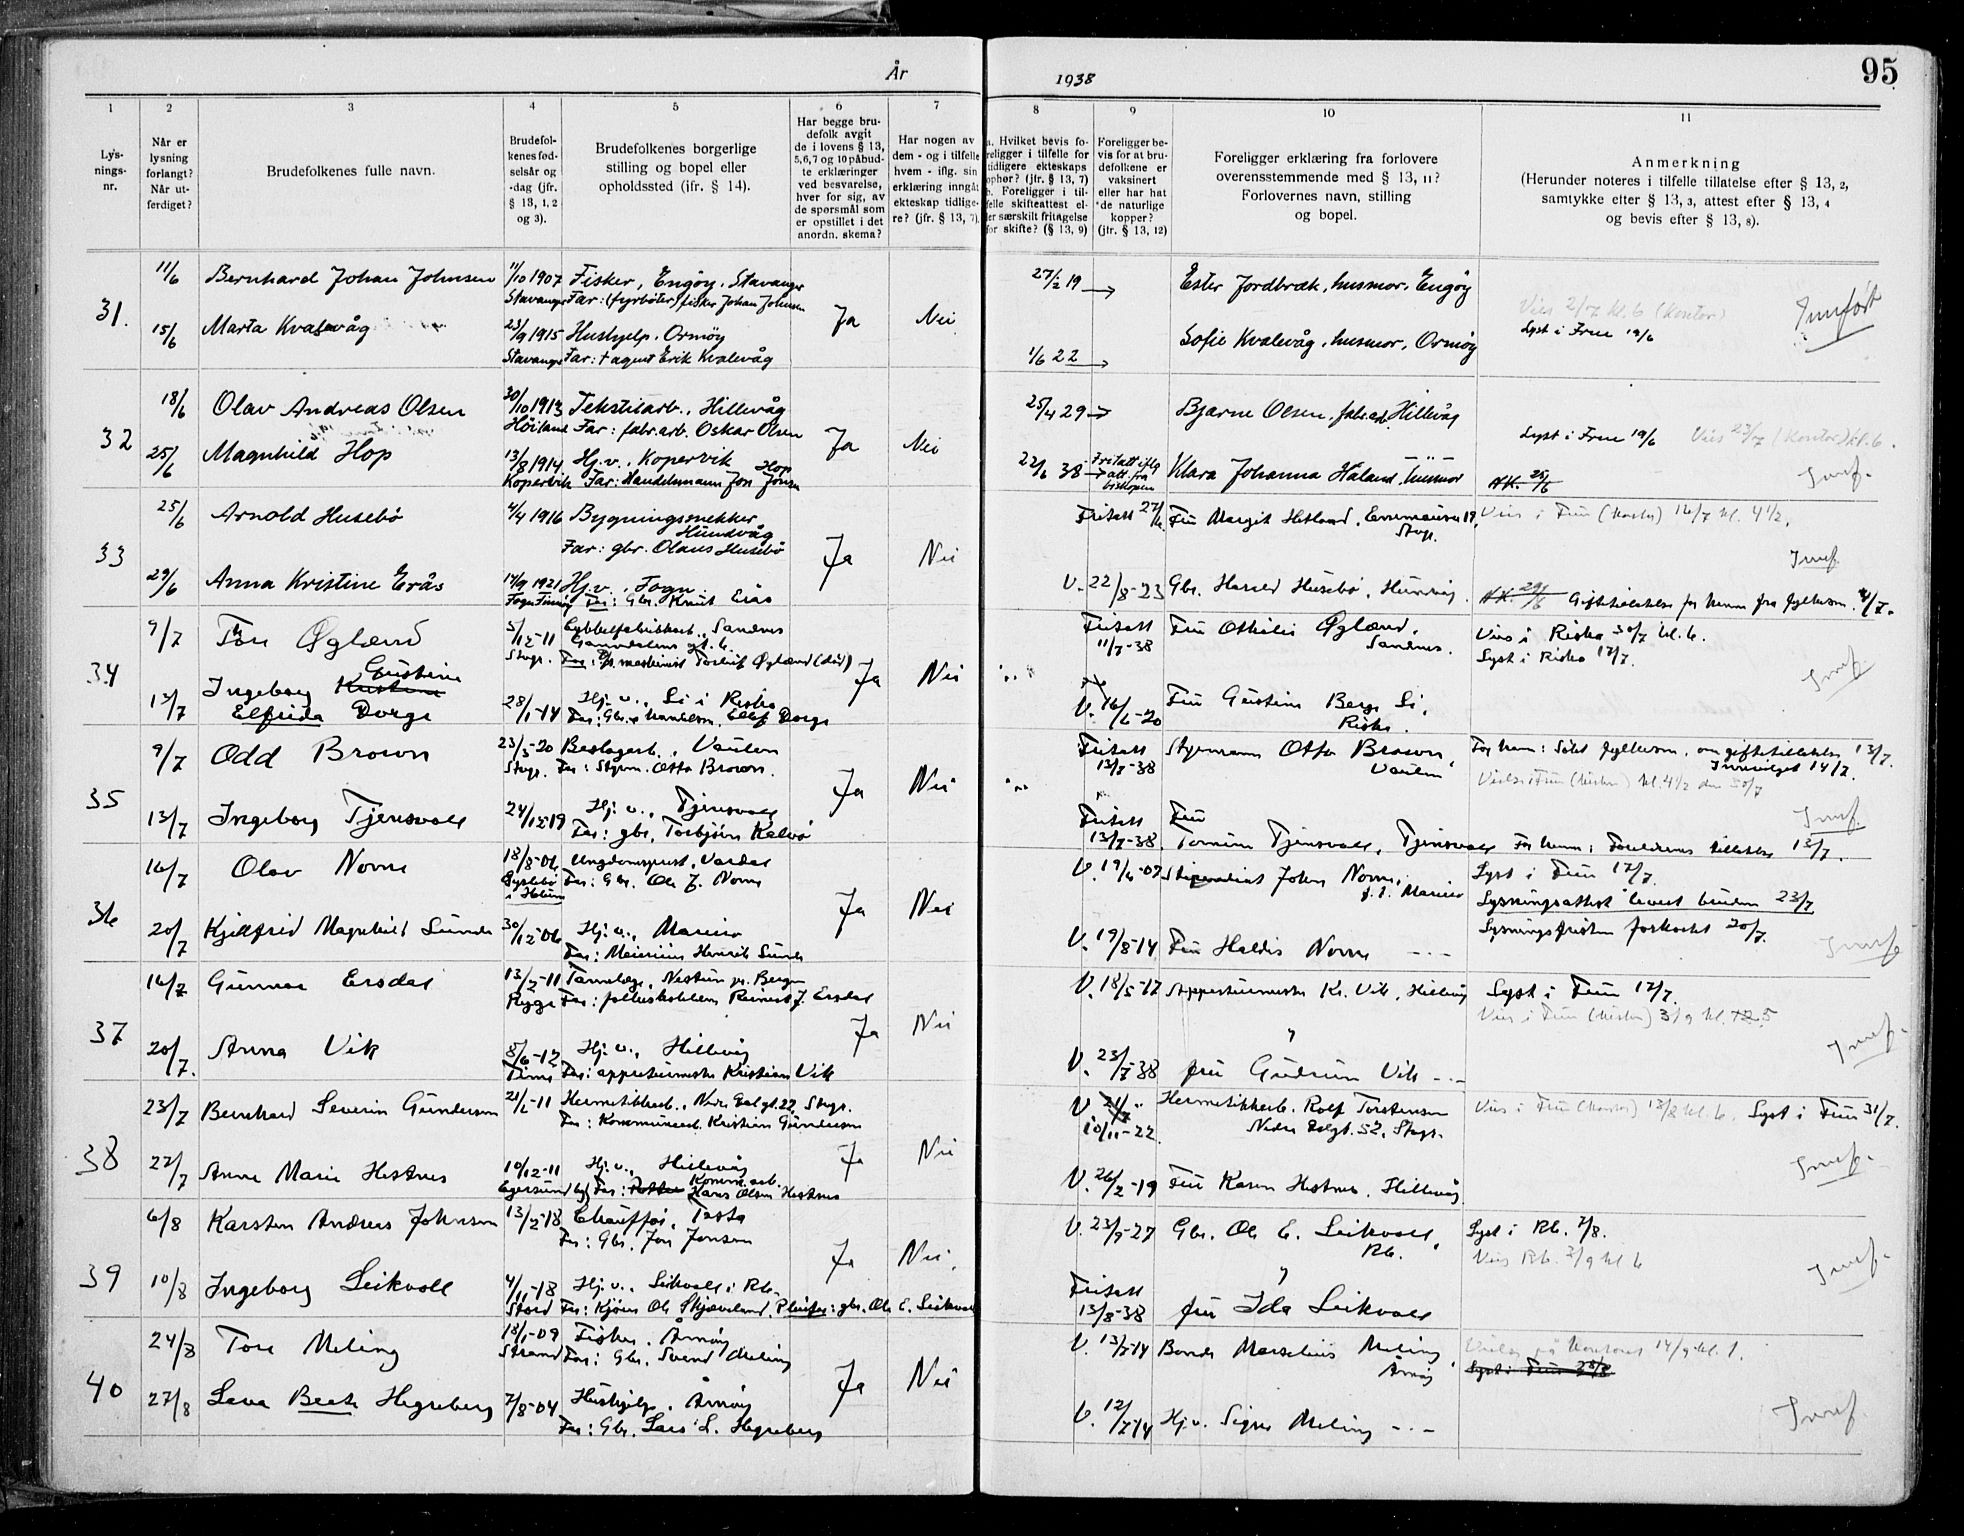 År 1938 95
1 2 3 4 5 6 7 8 9 10 11
Lys-
nings-
nr.
Når er
lysning
forlangt?
Når ut-
ferdiget?
Brudefolkenes fulle navn.
Brudefol-
kenes fød-
selsår og
-dag (jfr.
§ 13, 1, 2
og 3).
Brudefolkenes borgerlige
stilling og bopel eller
opholdssted (jfr. § 14).
Har begge bru-
defolk avgit
de i lovens § 13,
5,6,7 og 10 påbud-
te erklæringer
ved besvarelse,
hver for sig, av
de spørsmål som
er opstillet i det
anordn. skema?
Har nogen av
dem - og i tilfelle
hvem - iflg. sin
erklæring inngått
ekteskap tidlige-
re? (jfr. § 13, 7).
a. Hvilket bevis fo-
religger i tilfelle for
tidligere ekteskaps
ophør? (jfr. § 13, 7)
b. Foreligger i til-
felle skifteattest el-
ler særskilt fritagelse
for skifte? (§ 13, 9)
Foreligger be-
vis for at bru-
defolkene er
vaksinert
eller har hat
de naturlige
kopper?
(jfr. § 13, 12)
Foreligger erklæring fra forlovere
overensstemmende med § 13, 11?
Forlovernes navn, stilling
og bopel.
Anmerkning
(Herunder noteres i tilfelle tillatelse efter § 13, 2,
samtykke efter § 13, 3, attest efter § 13, 4
og bevis efter § 13, 8).
31. 11/6 Bernhard Johan Johnsen 11/10 1907 Fisker, Engøy, Stavanger
Stavanger Far: (fyrbøter) fisker Johan Johnsen
Ja Nei 27/2 19 → Ester Jordbræk, husmor, Engøy
Vies 2/7 kl. 6 (Kontor)
Lyst i Frue 19/6
Innført
15/6 Marta Kvalevåg 23/9 1915 Hushjelp, Ormøy
Stavanger Far: † agent Erik Kvalevåg
1/6 22 → Sofie Kvalevåg, husmor, Ormøy
32 18/6 Olav Andreas Olsen 30/10 1913 Tekstilarb., Hillevåg
Høiland Far: fabr.arb. Oskar Olsen
Ja Nei 25/4 29 → Bjarne Olsen, fabr.arb. Hillevåg
Lyst i Frue 19/6 Vies 23/7 (Kontor) kl. 6.
25/6 Magnhild Hop 13/8 1914 Hj.v., Kopervik
Kopervik Far: Handelsmann Jon Jonsen Hop
22/6 38 → Fritatt iflg att. fra biskopen Klara Johanna Haland, husmor
N.K. 25/6
Innf.
33 25/6 Arnold Husebø 4/4 1916 Bygningssnekker
Hundvåg
Far: gbr. Olaus Husebø
Ja Nei Fritatt 27/6 Fru Margit Hetland, Emmausv. 19,
Stvgr.
Vies i Frue (Kontor) 16/7 kl. 4 1/2.
Innf.
29/6 Anna Kristine Erås 14/9 1921 Hj.v., Fogn
Fogn Finnøy Far: Gbr. Knut Erås
V. 22/8-23 Gbr. Harald Husebø, Hundvåg.
N.K. 29/6 Giftetillatelse for henne fra fylkesm. 4/7.
34 9/7 Tor Øgland 5/12-11
Stvgr. Far: maskinist Torleif Øgland (død)
Ja Nei Fritatt 11/7-38 Fru Othilie Øgland,
Sandnes.
Vies i Riska 30/7 kl. 6.
Lyst i Riska 17/7.
Innf.
13/7 Ingeborg Kristine Gustine
Elfrida Dorge 28/1-14 Hj.v., Li i Riska
Far: Gbr. & handelsm. Ellef Dorge
V. 16/6-20 Fru Gustine Berge Li,
Riska.
35 9/7 Odd Brown 23/3-20 Beslagarb., Vaulen
Stvgr. Far: Styrm. Otto Brown.
Ja Nei Fritatt 13/7-38 Styrmann Otto Brown,
Vaulen
For ham: Søkt fylkesm. om giftetillatelse 13/7.
Innvilget 14/7.
Vielse i Frue (Kirken) kl. 4 1/2 den 30/7
Innf.
13/7 Ingeborg Tjensvoll 24/12-19 Hj.v., Tjensvoll
Far: gbr. Torbjørn Kalvø
Fritatt 13/7-38. Fru
Tomine Tjensvoll, Tjensvoll
For henne: Foreldrenes tillatelse 13/7.
36 16/7 Olav Norne 18/8-06 Ungdomsprest, Vardal
Far: Gbr. Ole J. Norne
Ja Nei V. 19/6-07 Stipendiat Johs Norne,
Lyst i Frue 17/7.
Lysningsattest levert bruden 23/7
20/7 Kjellfrid Magnhild Sunde 30/12-06 Hj.v., Mariero
Far: Meierieier Henrik Sunde
V. 19/8-14 Fru Haldis Norne -"-
Lysningsfristen forkortet 20/7.
Innf.
37 16/7 Gunnar Ersdal 13/2-11 Tannlæge, Nestun pr. Bergen
Rygge Far: folkeskolelærer Reinert J. Ersdal
Ja Nei V. 18/5-17 Appreturmester Kr. Vik, Hillevåg
Lyst i Frue 17/7.
Vies i Frue (Kirken) 3/9 kl. 5
Innf.
20/7. Anna Vik 8/6-12 Hj.v., Hillevåg
Time Far: appreturmester Kristian Vik
V. 23/7-38 fru Gudrun Vik -"-
38 23/7 Bernhard Severin Gundersen 21/6-11 Hermetikkarb., Nedre Dalgt. 22, Stvgr.
Far: Kommunearb. Kristian Gundersen
Ja Nei V. 10/11-22. Hermetikkarb. Rolf Torstensen
Nedre Dalgt. 52, Stvgr.
Vies i Frue (Kontor) 13/8 kl. 6. Lyst i Frue 31/7.
Innf.
27/7 Anne Marie Hestnes 10/12-11 Hj.v., Hillevåg
Egersund Far: Komm.arb. Hans Olsen Hestnes
V. 26/2-19 Fru Karen Hestnes, Hillevåg.
39 6/8 Karsten Andreas Johnsen 13/2-18 Chauffør, Tasta
Far: Gbr. Jon Jonsen
Ja Nei. V. 23/9-27 Gbr. Ole E. Leikvoll,
Rb.
Lyst i Rb. 7/8.
Vies Rb. 3/9 kl 6
Innf.
10/8 Ingeborg Leikvoll 4/11-18 Hj.v., Leikvoll i Rb.
Stord Far: Kjøm. Ole Skjæveland, Pleiefar: gbr. Ole E. Leikvoll
Fritatt 13/8-38 fru Ida Leikvoll
40 24/8 Tore Meling 18/1-09 Fisker, Åmøy
Strand Far: Gbr. Svend Meling
Ja Nei V. 13/7-14 Bonde Marselius Meling,
Åmøy
Vielse på Kontoret 14/9 kl. 1.
Lyst i Frue 28/8
27/8 Lava Beate Hegreberg 7/8-04 Hushjelp, Åmøy
Far: Gbr. Lars L. Hegreberg
V. 12/7 14 Hj.v. Signe Meling -"-
Innf.